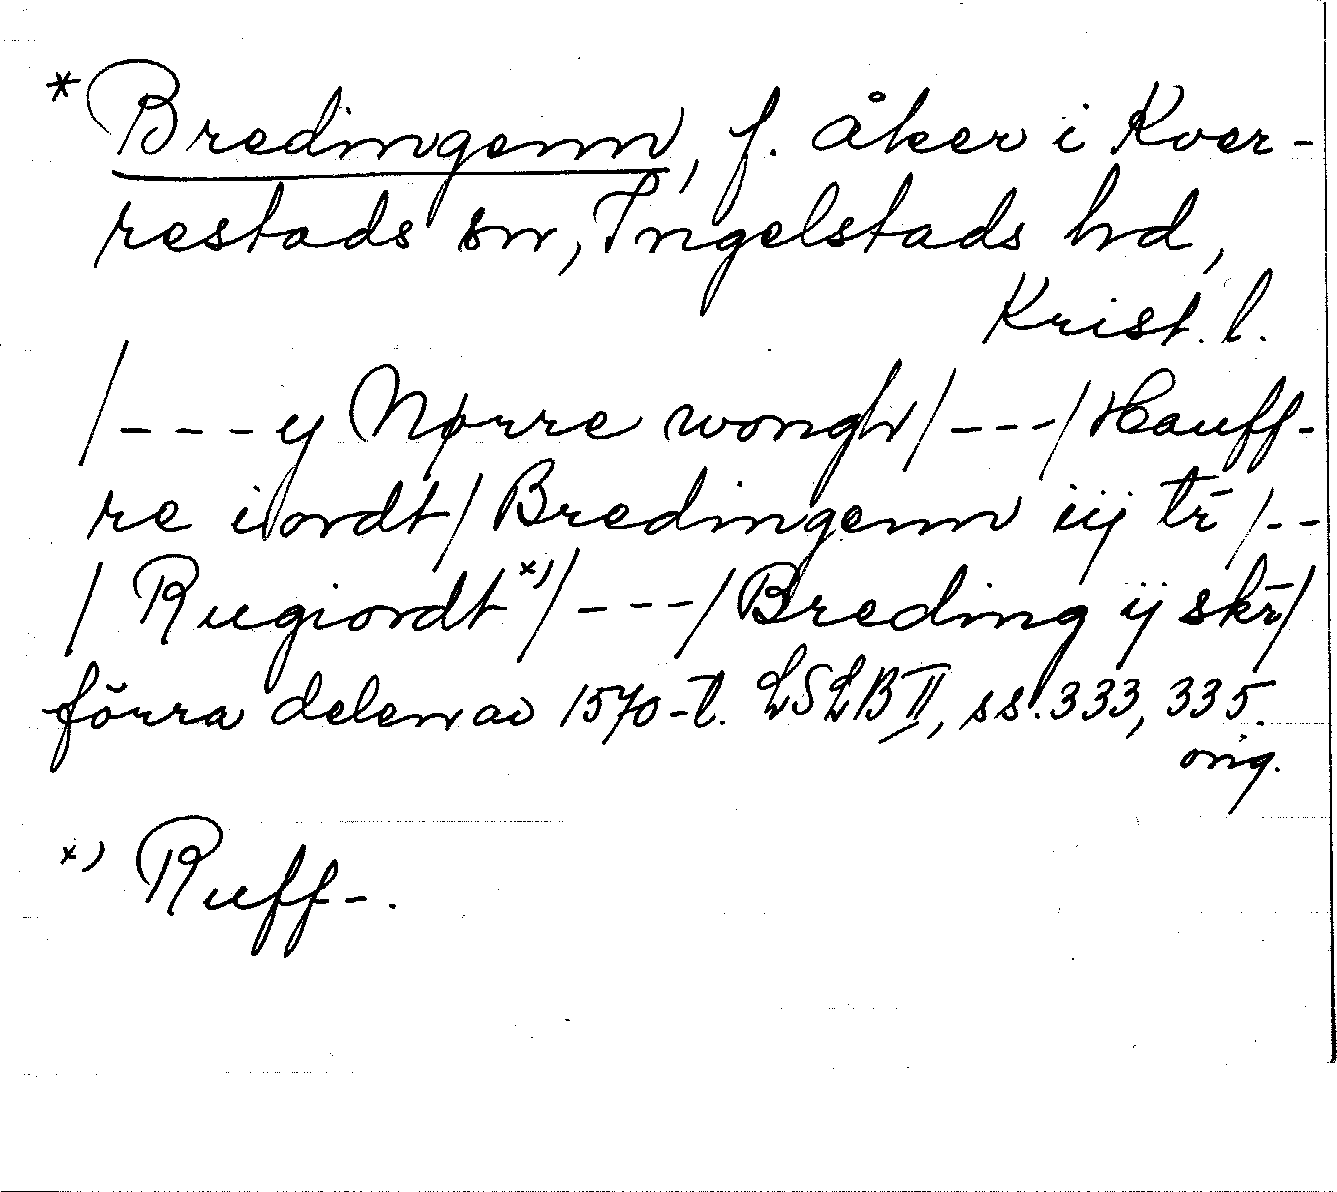 *Bredingenn, f. åker i Kver-
restads sn, Ingelstads hd,
Krist. l.
/---y Nørre wongh/---/Hauff-
re iordt/Bredingenn iij tr̄/--
/Rugiordt x)/---/Breding ij skr̄/
förra delen av 1570-t. LSLB II, ss. 333, 335.
orig.
x) Ruff-.